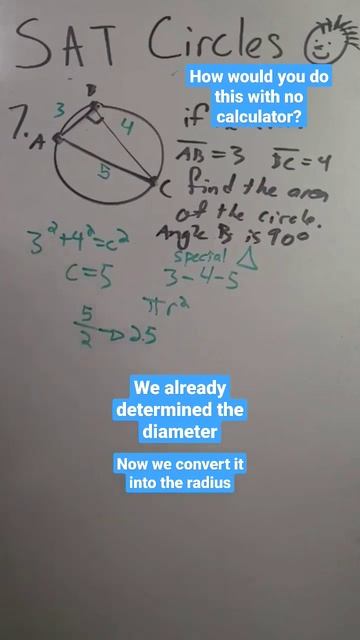 SAT Circles
How would you do
this with no
calculator?
B
3
7.
4
if
A
AB = 3 BC = 4
5
C find the area
of the circle.
3²+4²=c²
Angle B is 90°
special △
C=5
3-4-5
πr²
5/2 → 2.5
We already
determined the
diameter
Now we convert it
into the radius